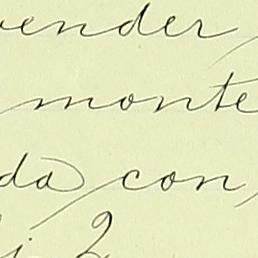 vender
monte
da con
2